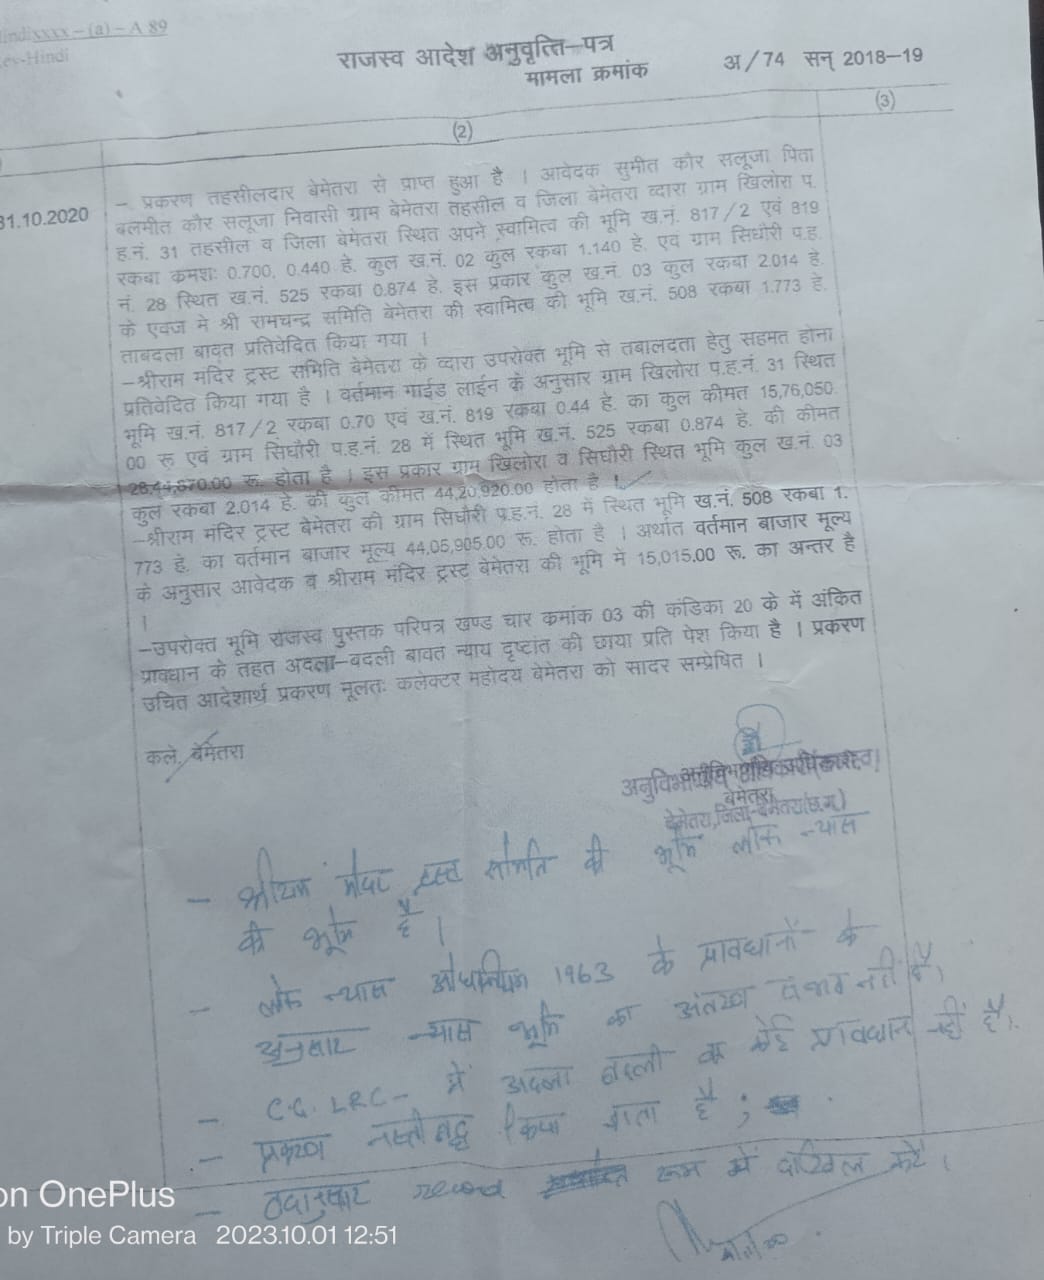 indixxxx-(a)-A 89
ev-Hindi
राजस्व आदेश अनुवृत्ति-पत्र
मामला क्रमांक
अ/74 सन् 2018-19
(2)
(3)
31.10.2020
– प्रकरण तहसीलदार बेमेतरा से प्राप्त हुआ है । आवेदक सुमीत कौर सलूजा पिता
बलमीत कौर सलूजा निवासी ग्राम बेमेतरा तहसील व जिला बेमेतरा व्दारा ग्राम खिलोरा प.
ह.नं. 31 तहसील व जिला बेमेतरा स्थित अपने स्वामित्व की भूमि ख.नं. 817/2 एवं 819
रकबा कमशः 0.700, 0.440 हे. कुल ख.नं. 02 कुल रकबा 1.140 हे. एवं ग्राम सिघौरी प.ह.
नं. 28 स्थित ख.नं. 525 रकबा 0.874 हे. इस प्रकार कुल ख.नं. 03 कुल रकबा 2.014 हे.
के एवज मे श्री रामचन्द्र समिति बेमेतरा की स्वामित्व की भूमि ख.नं. 508 रकबा 1.773 हे.
ताबदला बावत प्रतिवेदित किया गया ।
–श्रीराम मंदिर ट्रस्ट समिति बेमेतरा के व्दारा उपरोक्त भूमि से तबालदता हेतु सहमत होना
प्रतिवेदित किया गया है । वर्तमान गाईड लाईन के अनुसार ग्राम खिलोरा प.ह.नं. 31 स्थित
भूमि ख.नं. 817/2 रकबा 0.70 एवं ख.नं. 819 रकबा 0.44 हे. का कुल कीमत 15,76,050.
00 रू एवं ग्राम सिघौरी प.ह.नं. 28 में स्थित भूमि ख.नं. 525 रकबा 0.874 हे. की कीमत
28,44,870.00 रू. होता है । इस प्रकार ग्राम खिलोरा व सिघौरी स्थित भूमि कुल ख.नं. 03
कुल रकबा 2.014 हे. की कुल कीमत 44,20,920.00 होता है ।
–श्रीराम मंदिर ट्रस्ट बेमेतरा की ग्राम सिघौरी प.ह.नं. 28 में स्थित भूमि ख.नं. 508 रकबा 1.
773 हे. का वर्तमान बाजार मूल्य 44,05,905.00 रू. होता है । अर्थात वर्तमान बाजार मूल्य
के अनुसार आवेदक व श्रीराम मंदिर ट्रस्ट बेमेतरा की भूमि में 15,015.00 रू. का अन्तर है
।
–उपरोक्त भूमि राजस्व पुस्तक परिपत्र खण्ड चार कमांक 03 की कंडिका 20 के में अंकित
प्रावधान के तहत अदला-बदली बावत न्याय दृष्टांत की छाया प्रति पेश किया है । प्रकरण
उचित आदेशार्थ प्रकरण मूलतः कलेक्टर महोदय बेमेतरा को सादर सम्प्रेषित ।
कले. बेमेतरा
बेमेतरा
बेमेतरा,जिला-बेमेतरा(छ.ग.)
– श्रीराम मंदिर ट्रस्ट समिति की भूमि लोक न्यास
की भूमि है ।
– लोक न्यास अधिनियम 1963 के प्रावधानों के
अनुसार न्यास भूमि का अंतरण संभव नहीं है।
– C.G. LRC- में अदला बदली का कोई प्रावधान नहीं है।
– प्रकरण नस्तीबद्ध किया जाता है ;
– तदानुसार record रूम में दाखिल करें ।
on OnePlus
by Triple Camera 2023.10.01 12:51